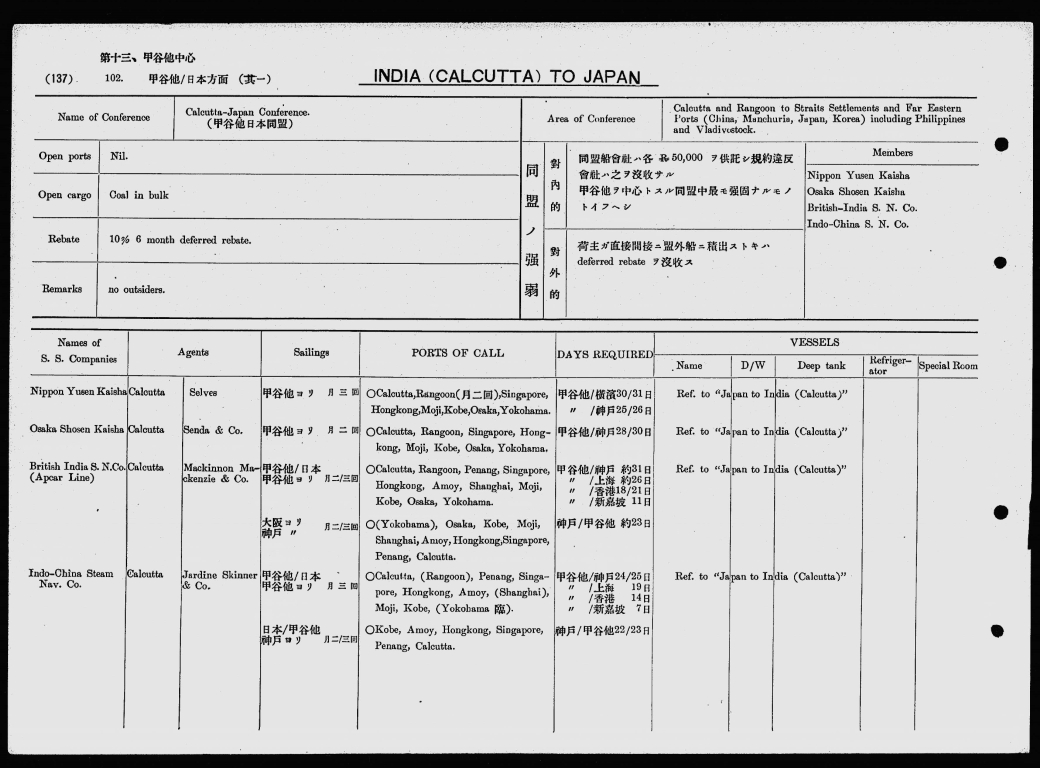 第十三、甲谷他中心
(137) 102. 甲谷他/日本方面 (其一)
INDIA (CALCUTTA) TO JAPAN
Name of Conference
Calcutta-Japan Conference.
(甲谷他日本同盟)
Area of Conference
Calcutta and Rangoon to Straits Settlements and Far Eastern
Ports (China, Manchuria, Japan, Korea) including Philippines
and Vladivostock.
Open ports
Nil.
Open cargo
Coal in bulk
Rebate
10% 6 month deferred rebate.
Remarks
no outsiders.
同盟ノ强弱
對內的
同盟船會社ハ各 Rs 50,000 ヲ供託シ規約違反
會社ハ之ヲ沒收サル
甲谷他ヲ中心トスル同盟中最モ强固ナルモノ
トイフヘシ
對外的
荷主ガ直接間接ニ盟外船ニ積出ストキハ
deferred rebate ヲ沒收ス
Members
Nippon Yusen Kaisha
Osaka Shosen Kaisha
British-India S. N. Co.
Indo-China S. N. Co.
Names of
S. S. Companies
Agents
Sailings
PORTS OF CALL
DAYS REQUIRED
VESSELS
Name
D/W
Deep tank
Refriger-
ator
Special Room
Nippon Yusen Kaisha
Calcutta
Selves
甲谷他ヨリ 月三回
○Calcutta,Rangoon(月二回),Singapore,
Hongkong,Moji,Kobe,Osaka,Yokohama.
甲谷他/橫濱30/31日
〃 /神戸25/26日
Ref. to "Japan to India (Calcutta)"
Osaka Shosen Kaisha
Calcutta
Senda & Co.
甲谷他ヨリ 月二回
○Calcutta, Rangoon, Singapore, Hong-
kong, Moji, Kobe, Osaka, Yokohama.
甲谷他/神戸28/30日
Ref. to "Japan to India (Calcutta)"
British India S. N.Co.
(Apcar Line)
Calcutta
Mackinnon Ma-
ckenzie & Co.
甲谷他/日本
甲谷他ヨリ 月二/三回
○Calcutta, Rangoon, Penang, Singapore,
Hongkong, Amoy, Shanghai, Moji,
Kobe, Osaka, Yokohama.
甲谷他/神戸 約31日
〃 /上海 約26日
〃 /香港18/21日
〃 /新嘉坡 11日
Ref. to "Japan to India (Calcutta)"
大阪ヨリ
神戸 〃 月二/三回
○(Yokohama), Osaka, Kobe, Moji,
Shanghai, Amoy, Hongkong,Singapore,
Penang, Calcutta.
神戸/甲谷他 約23日
Indo-China Steam
Nav. Co.
Calcutta
Jardine Skinner
& Co.
甲谷他/日本
甲谷他ヨリ 月三回
○Calcutta, (Rangoon), Penang, Singa-
pore, Hongkong, Amoy, (Shanghai),
Moji, Kobe, (Yokohama 臨).
甲谷他/神戸24/25日
〃 /上海 19日
〃 /香港 14日
〃 /新嘉坡 7日
Ref. to "Japan to India (Calcutta)"
日本/甲谷他
神戸ヨリ 月二/三回
○Kobe, Amoy, Hongkong, Singapore,
Penang, Calcutta.
神戸/甲谷他22/23日